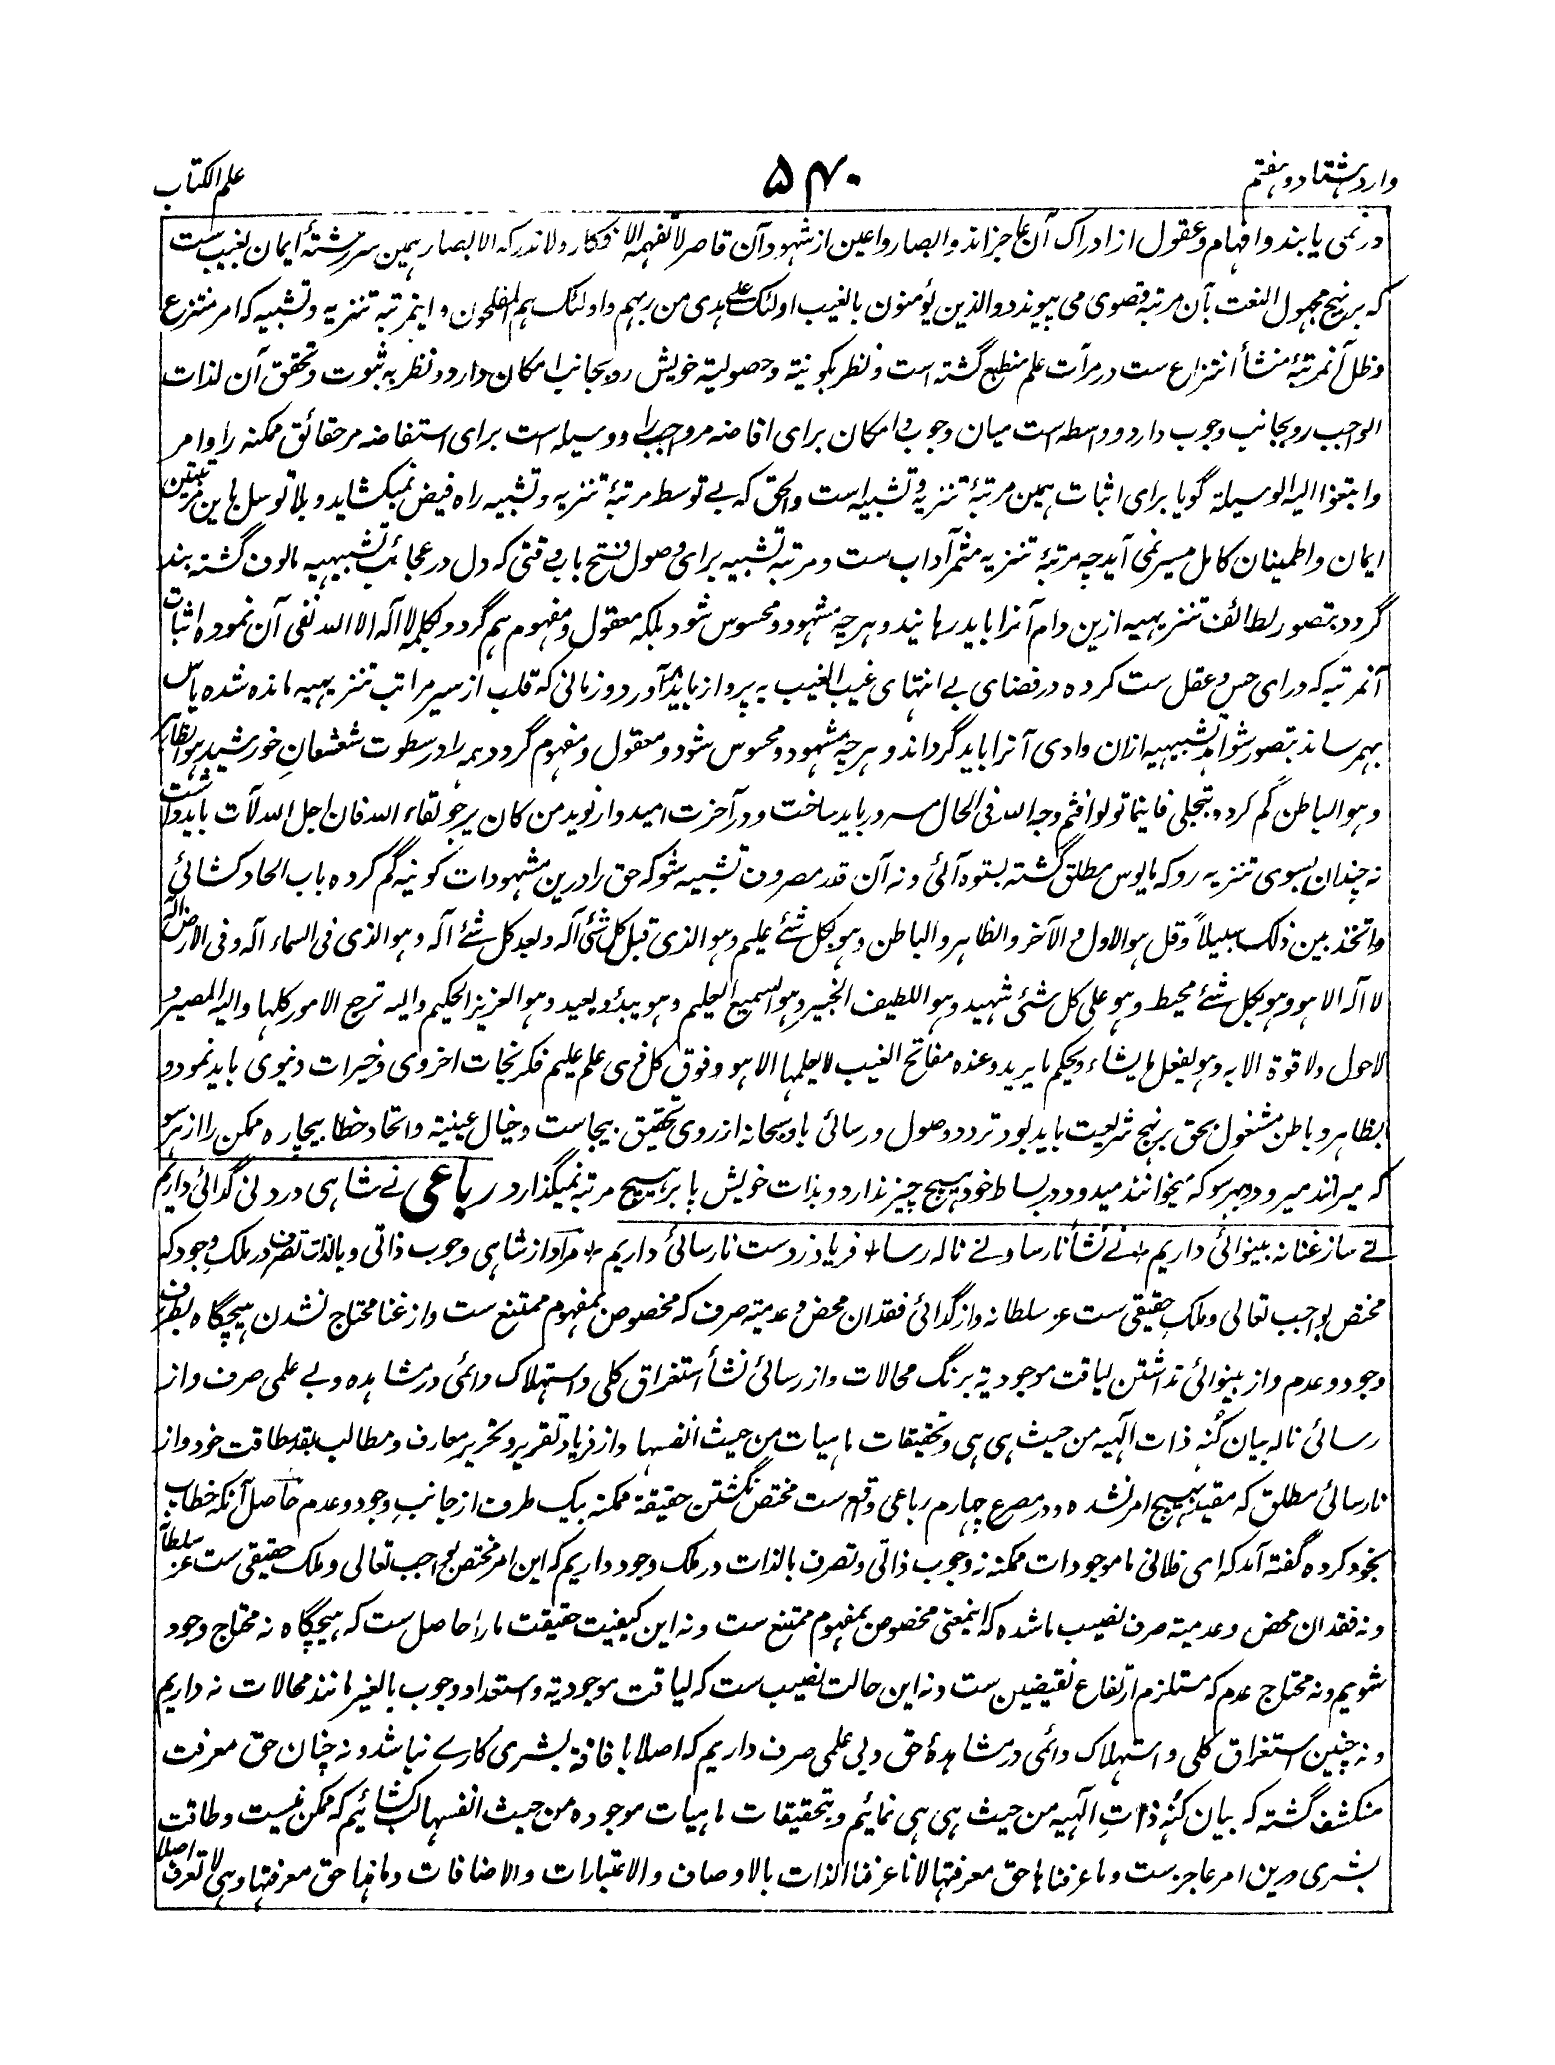 وارد هشتاد و هفتم
۵۴۰
علم الکتاب
در نمی یابند و افهام و عقول از ادراک آن عاجز اند و ابصار و اعین از شهود آن قاصر لا تفهمه الافکار و لا تدرکه الابصار همین سر رشتهٔ ایمان بغیب ست
که بر نهج مجهول النعت بآن مرتبهٔ قصوی می پیوندد و الذین یؤمنون بالغیب اولئک علی هدی من ربهم و اولئک هم المفلحون و اینمرتبهٔ تنزیه و تشبیه که امر منتزع
و ظل آنمرتبهٔ منشأ انتزاع ست در مرآت علم منطبع گشته است و نظر بکونیة و حصولیة خویش رو بجانب امکان دارد و نظر به ثبوت و تحقق آن لذات
الواجب رو بجانب وجوب دارد و واسطه است میان وجوب و امکان برای افاضه مر واجب را و وسیله است برای استفاضه مر حقائق ممکنه را و امر
وابتغوا الیه الوسیلة گویا برای اثبات همین مرتبهٔ تنزیه و تشبیه است و الحق که بے توسط مرتبهٔ تنزیه و تشبیه راه فیض نمیکشاید و بلا توسل باین مرتبتین
ایمان و اطمینان کامل میسر نمی آید چه مرتبهٔ تنزیه مثمر آداب ست و مرتبه تشبیه برای وصول فتح باب وقتی که دل در عجائب تشبیهیه مالوف گشته بند
گردد بتصور لطائف تنزیهیه ازین دام آنرا باید رهانید و هر چه مشهود و محسوس شود بلکه معقول و مفهوم هم گردد بکلمهٔ لا اله الا الله نفی آن نموده اثبات
آنمرتبه که ورای حس و عقل ست کرده در فضای بے انتهای غیب الغیب به پرواز باید آورد و زمانی که قلب از سیر مراتب تنزیهیه مانده شده یاس
بهم رساند بتصور شواهد تشبیهیه ازان وادی آنرا باید گرداند و هر چه مشهود و محسوس شود و معقول و مفهوم گردد همه را در سطوت شعشعان خورشید هو الظاهر
و هو الباطن گم کرده بتجلی فاینما تولوا فثم وجه الله فی الحال مسرور باید ساخت و در آخرت امیدوار نوید من کان یرجو لقاء الله فان اجل الله لآت باید داشت
نه چندان بسوی تنزیه رو که مایوس مطلق گشته بستوه آئی و نه آن قدر مصروف تشبیه شو که حق را درین مشهودات کونیه گم کرده باب الحاد کشائی
و اتخذ بین ذلک سبیلاً و قل هو الاول و الآخر و الظاهر و الباطن و هو بکل شئے علیم و هو الذی قبل کل شئی آله و بعد کل شئے آله و هو الذی فی السماء آله و فی الارض اله
لا آله الا هو و هو بکل شئے محیط و هو علی کل شئی شهید و هو اللطیف الخبیر و هو السمیع العلیم و هو یبدؤ و یعید و هو العزیز الحکیم و الیه ترجع الامور کلها و الیه المصیر و
لا حول و لا قوة الا به و هو یفعل ما یشاء و یحکم ما یرید و عنده مفاتح الغیب لا یعلمها الا هو و فوق کل ذی علم علیم فکر نجات اخروی و خیرات دنیوی باید نمود و
بظاهر و باطن مشغول بحق بر نهج شریعت باید بود تردد و وصول و رسائی باو سبحانه از روی تحقیق بیجاست و خیال عینیة و اتحاد خطا بیچاره ممکن را از هر سو
که میرانند میرود و بهر سو که میخوانند میدود در بساط خود هیچ چیز ندارد و بذات خویش پا بر هیچ مرتبه نمیگذارد رباعی نے شاهی در دو نی گدائی داریم
نے ساز غنا نه بینوائی داریم + نے نشأ نارسا و نے ناله رسا + فریاد ز دست نارسائی داریم + مراد از شاهی وجوب ذاتی و بالذات تصرف در ملک وجود که
مختص بواجب تعالی و ملک حقیقی ست عز سلطانه و از گدائی فقدان محض و عدمیة صرف که مخصوص بمفهوم ممتنع ست و از غنا محتاج نشدن هیچگاه بطرف
وجود و عدم و از بینوائی نداشتن لیاقت موجودیة برنگ محالات و از رسائی نشأ استغراق کلی و استهلاک دائمی در مشاهده و بے علمی صرف و از
رسائی ناله بیان کُنه ذات آلهیه من حیث هی هی و تحقیقات ماهیات من حیث انفسها و از فریاد تقریر و تحریر معارف و مطالب بقدر طاقت خود و از
نارسائی مطلق که مقید بهیچ امر نشده و در مصرع چهارم رباعی واقع ست مختص نگشتن حقیقة ممکنه بیک طرف از جانب وجود و عدم حاصل آنکه خطاب
بخود کرده گفته آمد که ای فلانی ما موجودات ممکنه نه وجوب ذاتی و تصرف بالذات در ملک وجود داریم که این امر مختص بواجب تعالی و ملک حقیقی ست عز سلطانه
و نه فقدان محض و عدمیة صرف نصیب ما شده که اینمعنی مخصوص بمفهوم ممتنع ست و نه این کیفیت حقیقت ما را حاصل ست که هیچگاه نه محتاج وجود
شویم و نه محتاج عدم که مستلزم ارتفاع نقیضین ست و نه این حالت نصیب ست که لیاقت موجودیة و استعداد وجوب بالغیر مانند محالات نه داریم
و نه چنین استغراق کلی و استهلاک دائمی در مشاهدهٔ حق و بی علمی صرف داریم که اصلا با فاقهٔ بشری کارے نباشد و نه چنان حق معرفت
منکشف گشته که بیان کُنه ذات الهیه من حیث هی هی نمائیم و تحقیقات ماهیات موجوده من حیث انفسها بکشائیم که ممکن نیست و طاقت
بشری درین امر عاجز ست و ما عرفناها حق معرفتها لانا عرفنا الذات بالاوصاف و الاعتبارات و الاضافات و ما هذا حق معرفتها و هی لا تعرف اصلا